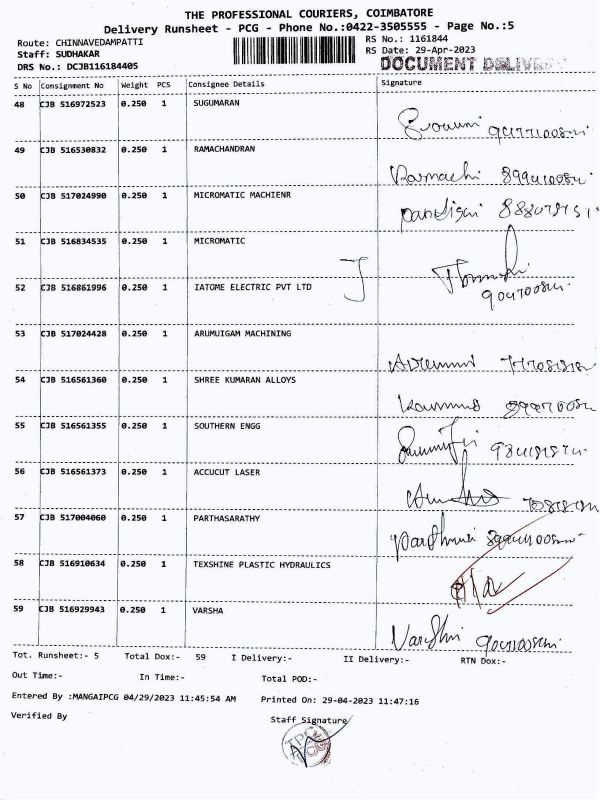 THE PROFESSIONAL COURIERS, COIMBATORE
Delivery Runsheet - PCG - Phone No.:0422-3505555 - Page No.:5
Route: CHINNAVEDAMPATTI RS No.: 1161844
Staff: SUDHAKAR RS Date: 29-Apr-2023
DRS No.: DCJB116184405 DOCUMENT DELIVERY
S No Consignment No Weight PCS Consignee Details Signature
48 CJB 516972523 0.250 1 SUGUMARAN
49 CJB 516530832 0.250 1 RAMACHANDRAN
50 CJB 517024990 0.250 1 MICROMATIC MACHIENR
51 CJB 516834535 0.250 1 MICROMATIC
52 CJB 516861996 0.250 1 IATOME ELECTRIC PVT LTD
53 CJB 517024428 0.250 1 ARUMUIGAM MACHINING
54 CJB 516561360 0.250 1 SHREE KUMARAN ALLOYS
55 CJB 516561355 0.250 1 SOUTHERN ENGG
56 CJB 516561373 0.250 1 ACCUCUT LASER
57 CJB 517004060 0.250 1 PARTHASARATHY
58 CJB 516910634 0.250 1 TEXSHINE PLASTIC HYDRAULICS
59 CJB 516929943 0.250 1 VARSHA
Tot. Runsheet:- 5 Total Dox:- 59 I Delivery:- II Delivery:- RTN Dox:-
Out Time:- In Time:- Total POD:-
Entered By :MANGAIPCG 04/29/2023 11:45:54 AM Printed On: 29-04-2023 11:47:16
Verified By Staff Signature